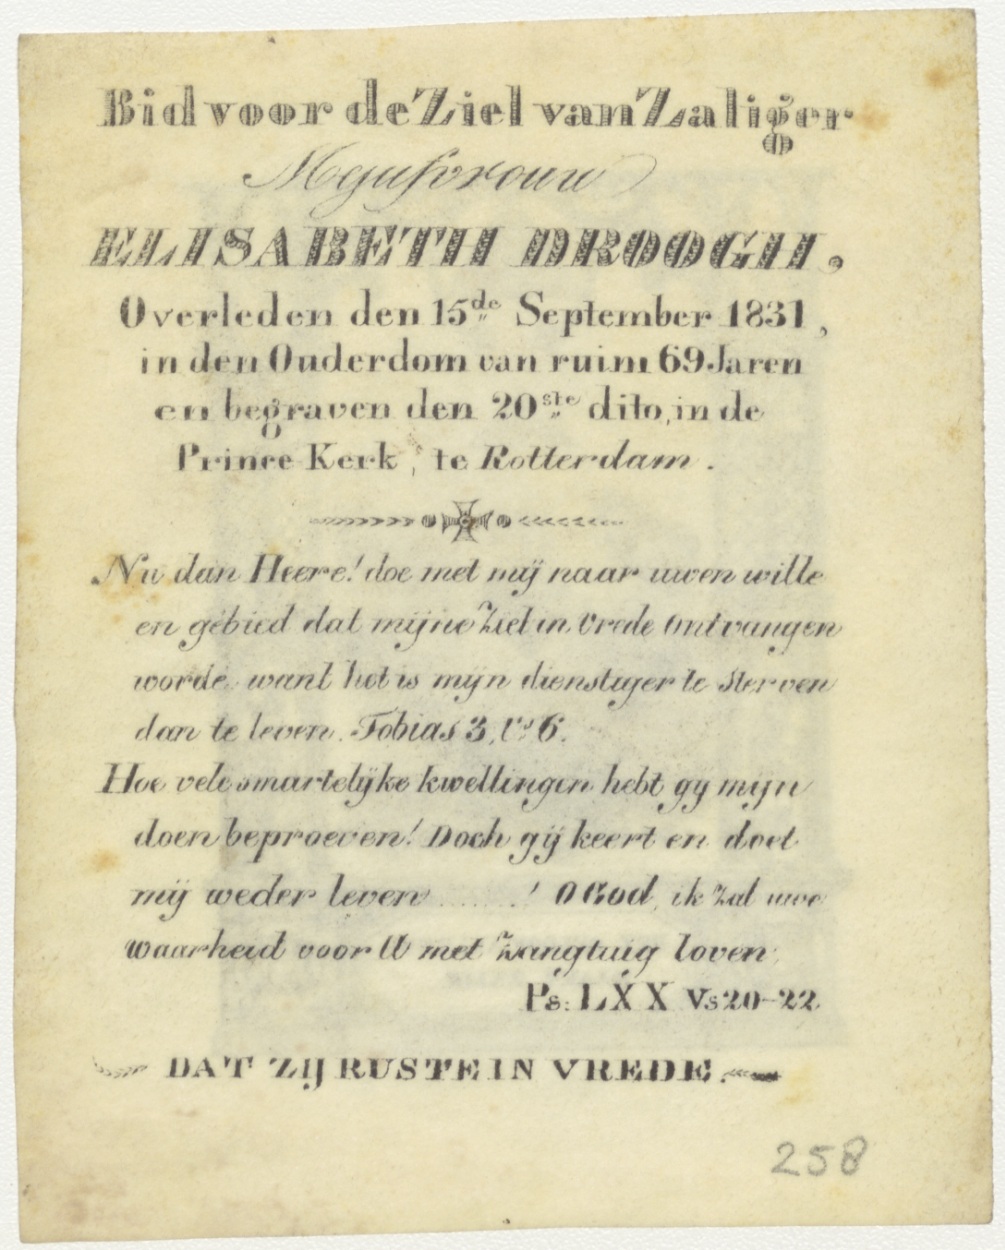 Bid voor de Ziel van Zaliger
Mejufvrouw
ELISABETH DROOGH,
Overleden den 15de September 1831,
in den Ouderdom van ruim 69 Jaren
en begraven den 20ste dito, in de
Prince Kerk, te Rotterdam.
Nu dan Heere! doe met mij naar uwen wille
en gebied dat mijne Ziel in Vrede Ontvangen
worde, want het is mijn dienstiger te Sterven
dan te leven. Tobias 3, Vs 6.
Hoe vele smartelijke kwellingen hebt gy mijn
doen beproeven! Doch gij keert en doet
mij weder leven ......! O God, ik Zal uwe
waarheid voor U met Zangtuig loven,
Ps: LXX Vs 20-22
DAT ZIJ RUSTE IN VREDE.
258